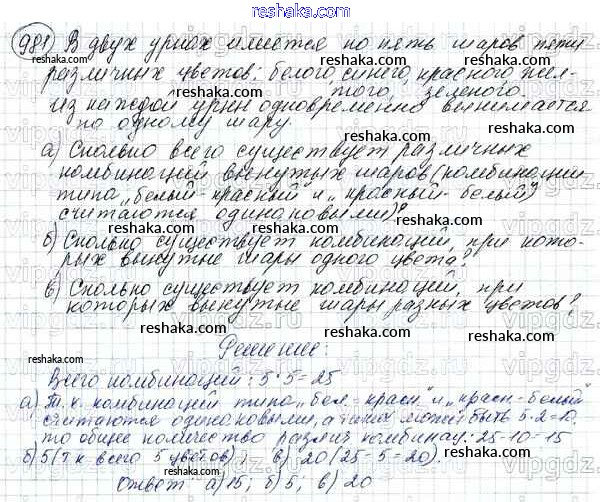 reshaka.com
981 В двух урнах имеется по пять шаров пяти
различных цветов: белого, синего, красного, жел-
того, зеленого.
Из каждой урны одновременно вынимается
по одному шару.
а) Сколько всего существует различных
комбинаций вынутых шаров (комбинации
типа „белый-красный" и „красный-белый"
считаются одинаковыми)?
б) Сколько существует комбинаций, при кото-
рых вынутые шары одного цвета?
в) Сколько существует комбинаций, при
которых вынутые шары разных цветов?
Решение:
Всего комбинаций: 5·5=25
а) Т.к. комбинаций типа „бел.-красн." и „красн.-белый"
считаются одинаковыми, а таких может быть 5·2=10,
то общее количество различ. комбинац.: 25-10=15
б) 5 (т.к всего 5 цветов); в) 20 (25-5=20).
Ответ: а) 15; б) 5; в) 20
reshaka.com